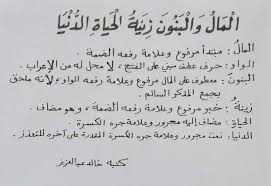 الْمَالُ وَالْبَنُونَ زِينَةُ الْحَيَاةِ الدُّنْيَا
المالُ : مبتدأ مرفوع وعلامة رفعه الضمة .
الواو : حرف عطف مبني على الفتح ، لا محل له من الإعراب .
البنونَ : معطوف على المال مرفوع وعلامة رفعه الواو ، لأنه ملحق
بجمع المذكر السالم .
زينةُ : خبر مرفوع وعلامة رفعه الضمة ، وهو مضاف .
الحياةِ : مضاف إليه مجرور وعلامة جره الكسرة .
الدنيا : نعت مجرور وعلامة جره الكسرة المقدرة على آخره للتعذر .
كتبه خالد عبدالعزيز